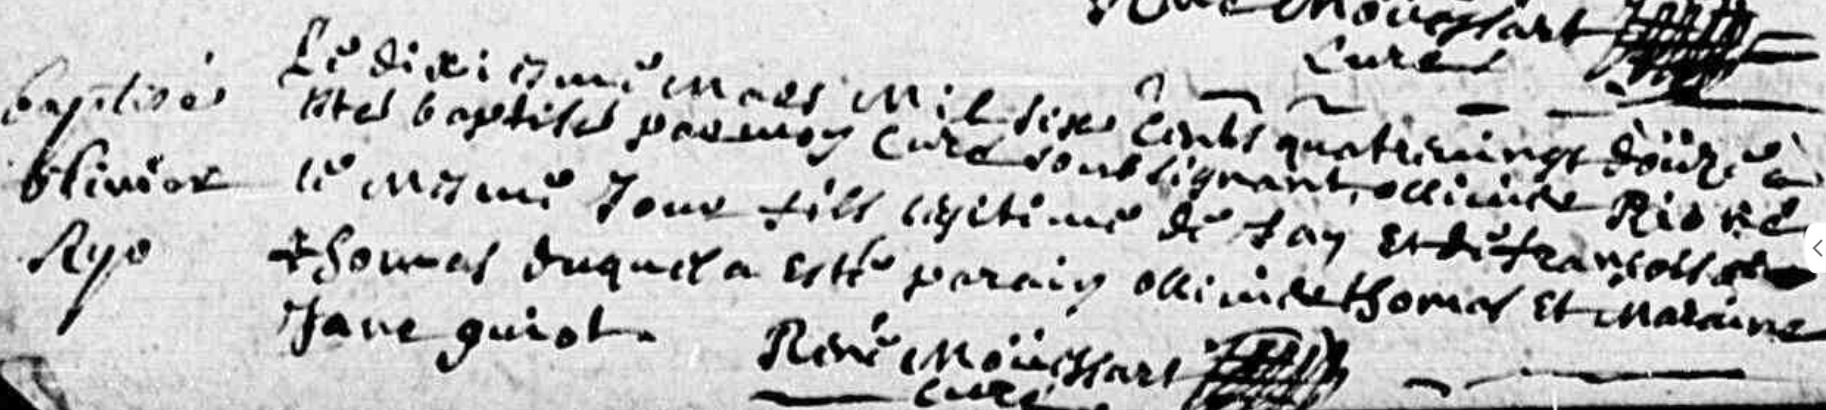 René Mouessart
Curé
baptisé
Ollivier
Ryo
Le dixiesme Mars Mil six Cents quatrevingt douze a
estes baptises par moy Curé soubsignant, ollivier Rio né
le mesme Jour fils legitime de fay et de françoisse
thomas duquel a esté parain ollivier thomas Et Maraine
Jane guiot
René Mouessart
Curé